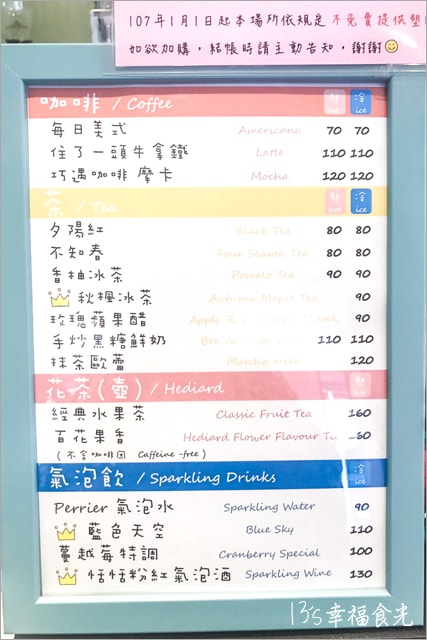 107年1月1日起本場所依規定 不免費提供塑
如欲加購，結帳時請主動告知，謝謝
咖啡 / Coffee 熱 hot 冷 ice
每日美式 Americano 70 70
住了一頭牛拿鐵 Latte 110 110
巧遇咖啡摩卡 Mocha 120 120
茶 / Tea 熱 hot 冷 ice
夕陽紅 Black Tea 80 80
不知春 Four Season Tea 80 80
香柚冰茶 Pomelo Tea 90 90
秋楓冰茶 Autumn Maple Tea 90
玫瑰蘋果醋 Apple 90
手炒黑糖鮮奶 110 110
抹茶歐蕾 Matcha milk 120
花茶(壺) / Hediard 熱 hot
經典水果茶 Classic Fruit Tea 160
百花果香 Hediard Flower Flavour 160
(不含咖啡因 Caffeine-free)
氣泡飲 / Sparkling Drinks 冷 ice
Perrier 氣泡水 Sparkling Water 90
藍色天空 Blue Sky 110
蔓越莓特調 Cranberry Special 100
恬恬粉紅氣泡酒 Sparkling Wine 130
13's幸福食光